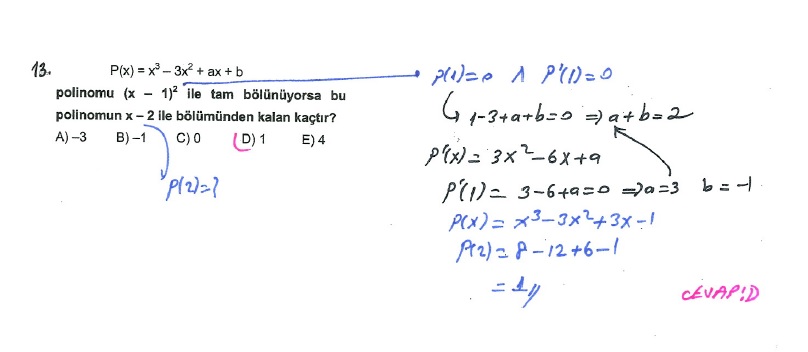 13. P(x) = x³ – 3x² + ax + b
polinomu (x – 1)² ile tam bölünüyorsa bu
polinomun x – 2 ile bölümünden kalan kaçtır?
A) –3 B) –1 C) 0 D) 1 E) 4
P(2)=?
P(1)=0 ∧ P'(1)=0
1-3+a+b=0 ⇒ a+b=2
P'(x) = 3x²-6x+a
P'(1) = 3-6+a=0 ⇒ a=3 b=-1
P(x) = x³-3x²+3x-1
P(2) = 8-12+6-1
= 1//
CEVAP:D